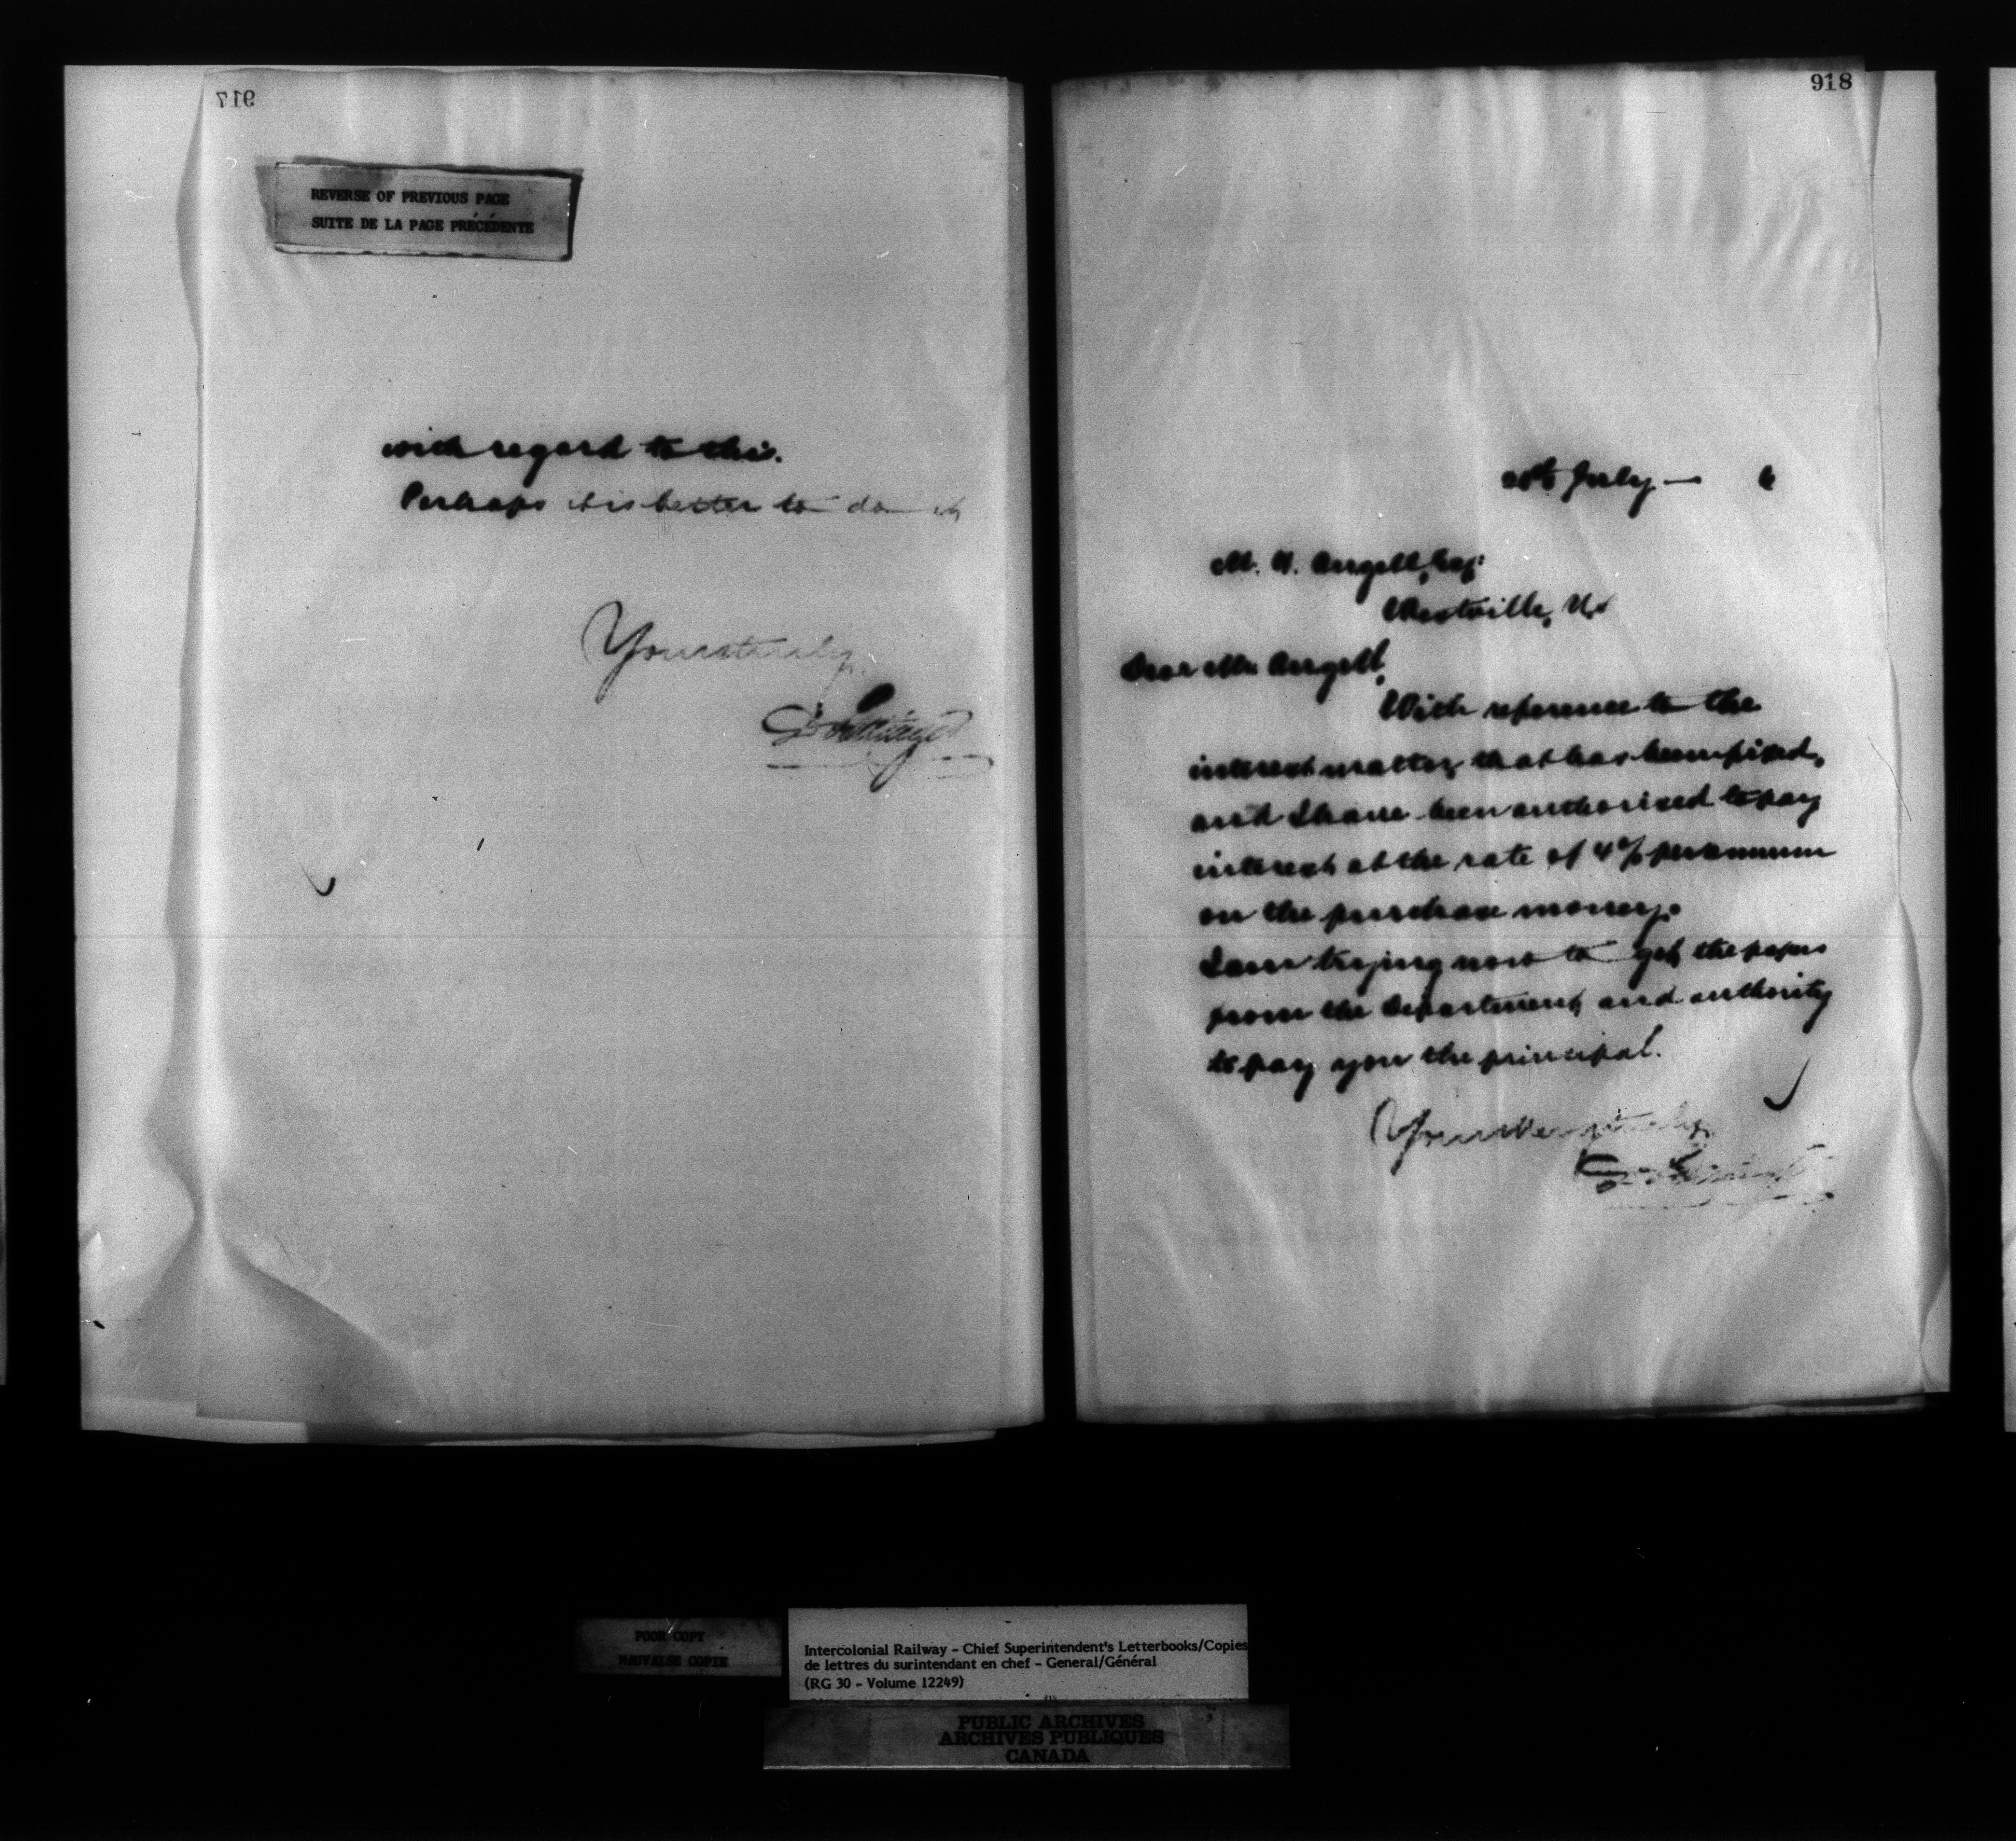 917
REVERSE OF PREVIOUS PAGE
SUITE DE LA PAGE PRÉCÉDENTE
with regard to this.
Perhaps it is better to do it
Yours truly
918
July — 6
Angell, Esq:
Westville, N.S
Dear Mr. Angell,
With reference to the
interest matter, that has been fixed,
and I have been authorized to pay
interest at the rate of 4% per annum
on the purchase money.
I am trying now to get the papers
from the Department, and authority
to pay you the principal.
Yours very truly
POOR COPY
MAUVAISE COPIE
Intercolonial Railway - Chief Superintendent's Letterbooks/Copies
de lettres du surintendant en chef - General/Général
(RG 30 - Volume 12249)
PUBLIC ARCHIVES
ARCHIVES PUBLIQUES
CANADA